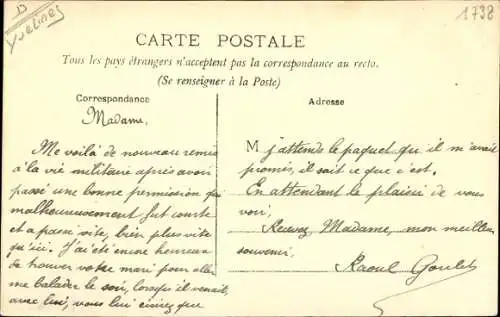 D
Yvelines
1738
CARTE POSTALE
Tous les pays étrangers n'acceptent pas la correspondance au recto.
(Se renseigner à la Poste)
Correspondance
Madame,
Me voilà de nouveau remis
à la vie militaire après avoir
passé une bonne permission qui
malheureusement fut courte
et a passé vite, bien plus vite
qu'ici. J'ai été encore heureux
de trouver votre mari pour aller
me balader le soir, lorsqu'il venait
avec lui, vous lui direz que
Adresse
M j'attends le paquet qu'il m'avait
promis, il sait ce que c'est.
En attendant le plaisir de vous
voir,
Recevez, Madame, mon meilleur
souvenir.
Raoul Goulet